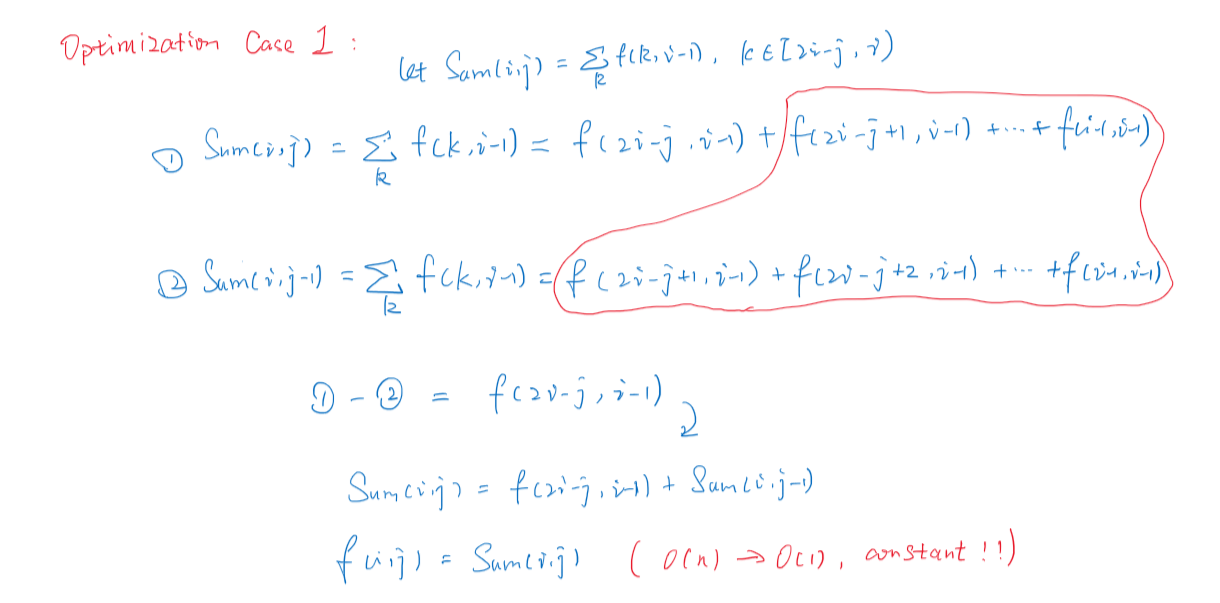 Optimization Case 1 :
let Sum(i,j) = ∑ₖ f(k,i-1), k ∈ [2i-j, i)
① Sum(i,j) = ∑ₖ f(k,i-1) = f(2i-j, i-1) + f(2i-j+1, i-1) + ... + f(i-1,i-1)
② Sum(i,j-1) = ∑ₖ f(k,i-1) = f(2i-j+1, i-1) + f(2i-j+2, i-1) + ... + f(i-1,i-1)
① - ② = f(2i-j, i-1)
Sum(i,j) = f(2i-j, i-1) + Sum(i,j-1)
f(i,j) = Sum(i,j) ( O(n) → O(1), constant !!)